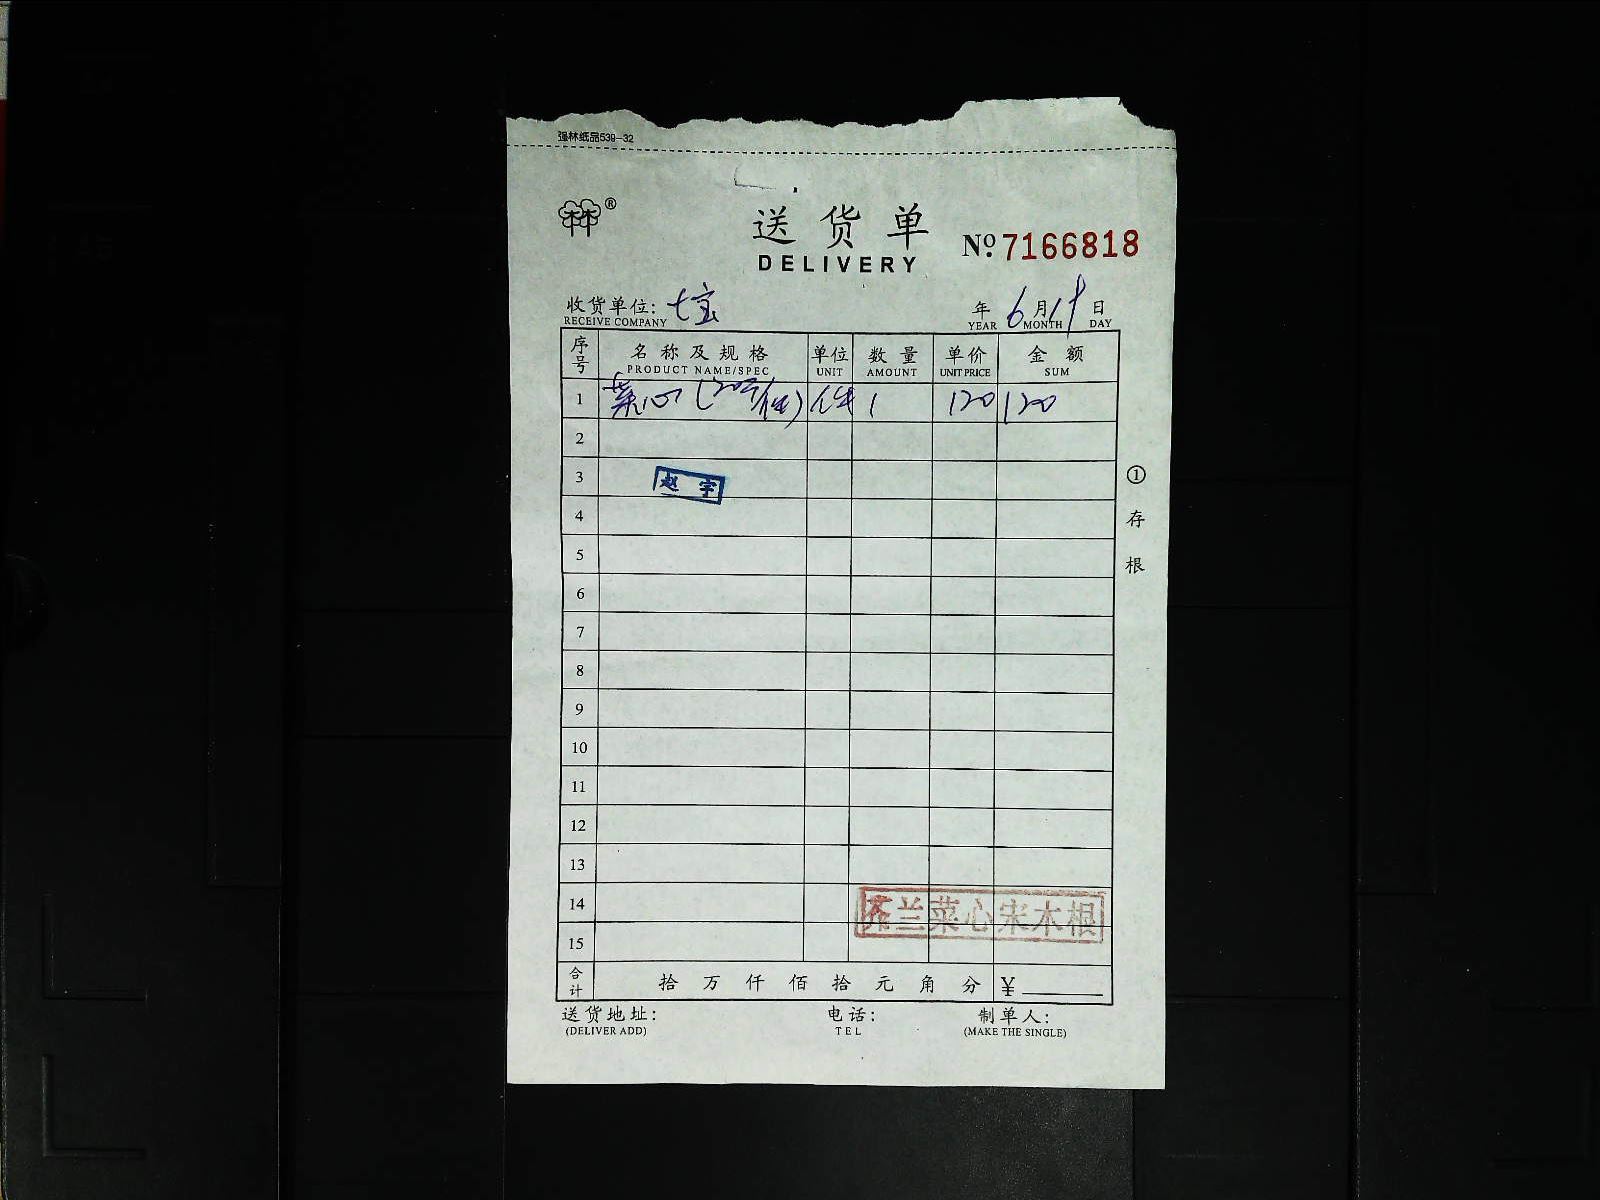 强林纸品539-32
林®
送货单
DELIVERY
No. 7166818
收货单位: 七宝 年 6 月 19 日
RECEIVE COMPANY YEAR MONTH DAY
序号 名称及规格 单位 数量 单价 金额
PRODUCT NAME/SPEC UNIT AMOUNT UNIT PRICE SUM
1 菜心 件 1 120 120
2
3 赵宇
4
5
6
7
8
9
10
11
12
13
14
芥兰菜心宋木根
15
合计 拾 万 仟 佰 拾 元 角 分 ¥
送货地址: 电话: 制单人:
(DELIVER ADD) TEL (MAKE THE SINGLE)
①存根